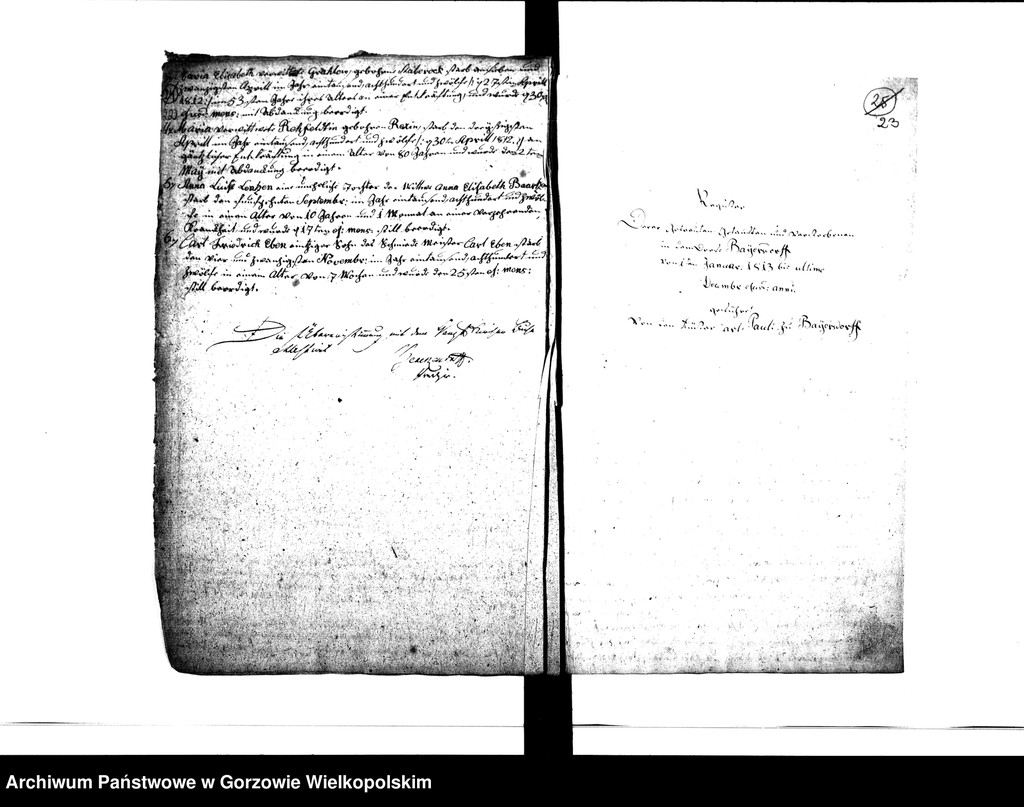 Maria Elisabeth verwittwete Grahlow, gebohrne Staberock starb am sieben und
zwanzigsten Aprill im Jahr eintausend achthundert und zwölfe /: 27sten Aprill
1812 :/ im 53sten Jahre ihres Alters an einer Entkräftung, und wurde 30sten
mens: mit Abdankung beerdigt.
4, Maria verwittwete Rehfeldtin gebohrne Rexin, starb den dreyßigsten
Aprill im Jahr eintausend achthundert und zwölfe /: 30t. April 1812 :/ an
gäntzlicher Entkräftung in einem Alter von 80 Jahren und wurde den 2ten
May mit Abdankung beerdigt.
5, Anna Luise eine uneheliche Tochter der Wittwe Anna Elisabeth
starb den Septembr: im Jahr eintausend achthundert und zwöl-
fe in einem Alter von 10 Jahren und 1 Monat an einer verzehrenden
Krankheit und wurde 17ten ej: mens: still beerdigt.
6, Carl Friedrick Eben einziger Sohn des Schmiede Meister Carl Eben starb
den vier und zwanzigsten Novembr: im Jahr eintausend achthundert und
zwölfe in einem Alter von 7 Wochen und wurde den 25sten ej: mens:
still beerdigt.
Die Übereinstimmung mit dem Haupt Kirchen Buche
attestirt
28
23
Register
Derer Getrauten Getauften und Verstorbenen
in dem Dorfe Bayersdorff
von 1ten Januar. 1813 bis ultimo
Decembr ejusd: anni.
geführt
Von dem Küster Pauli zu Bayersdorff
Archiwum Państwowe w Gorzowie Wielkopolskim